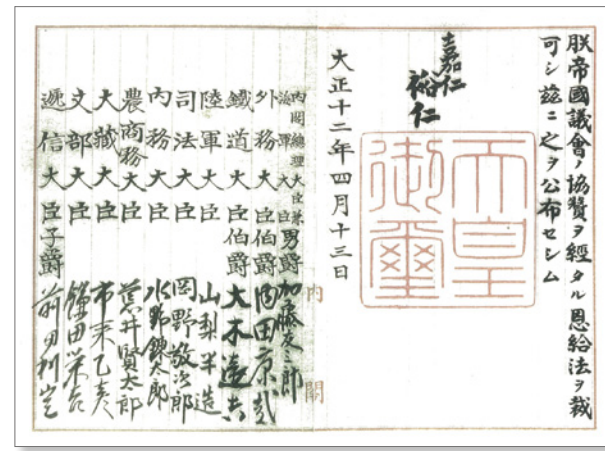 朕帝國議會ノ協贊ヲ經タル恩給法ヲ裁
可シ茲ニ之ヲ公布セシム
嘉仁
裕仁
天皇
御璽
大正十二年四月十三日
內閣總理大臣兼
海軍大臣 男爵 加藤友三郎
外務大臣伯爵 內田康哉
鐵道大臣伯爵 大木遠吉
陸軍大臣 山梨半造
司法大臣 岡野敬次郎
內務大臣 水野鍊太郎
農商務大臣 荒井賢太郎
大藏大臣 市来乙彦
文部大臣 鎌田栄吉
遞信大臣子爵 前田利定
內閣